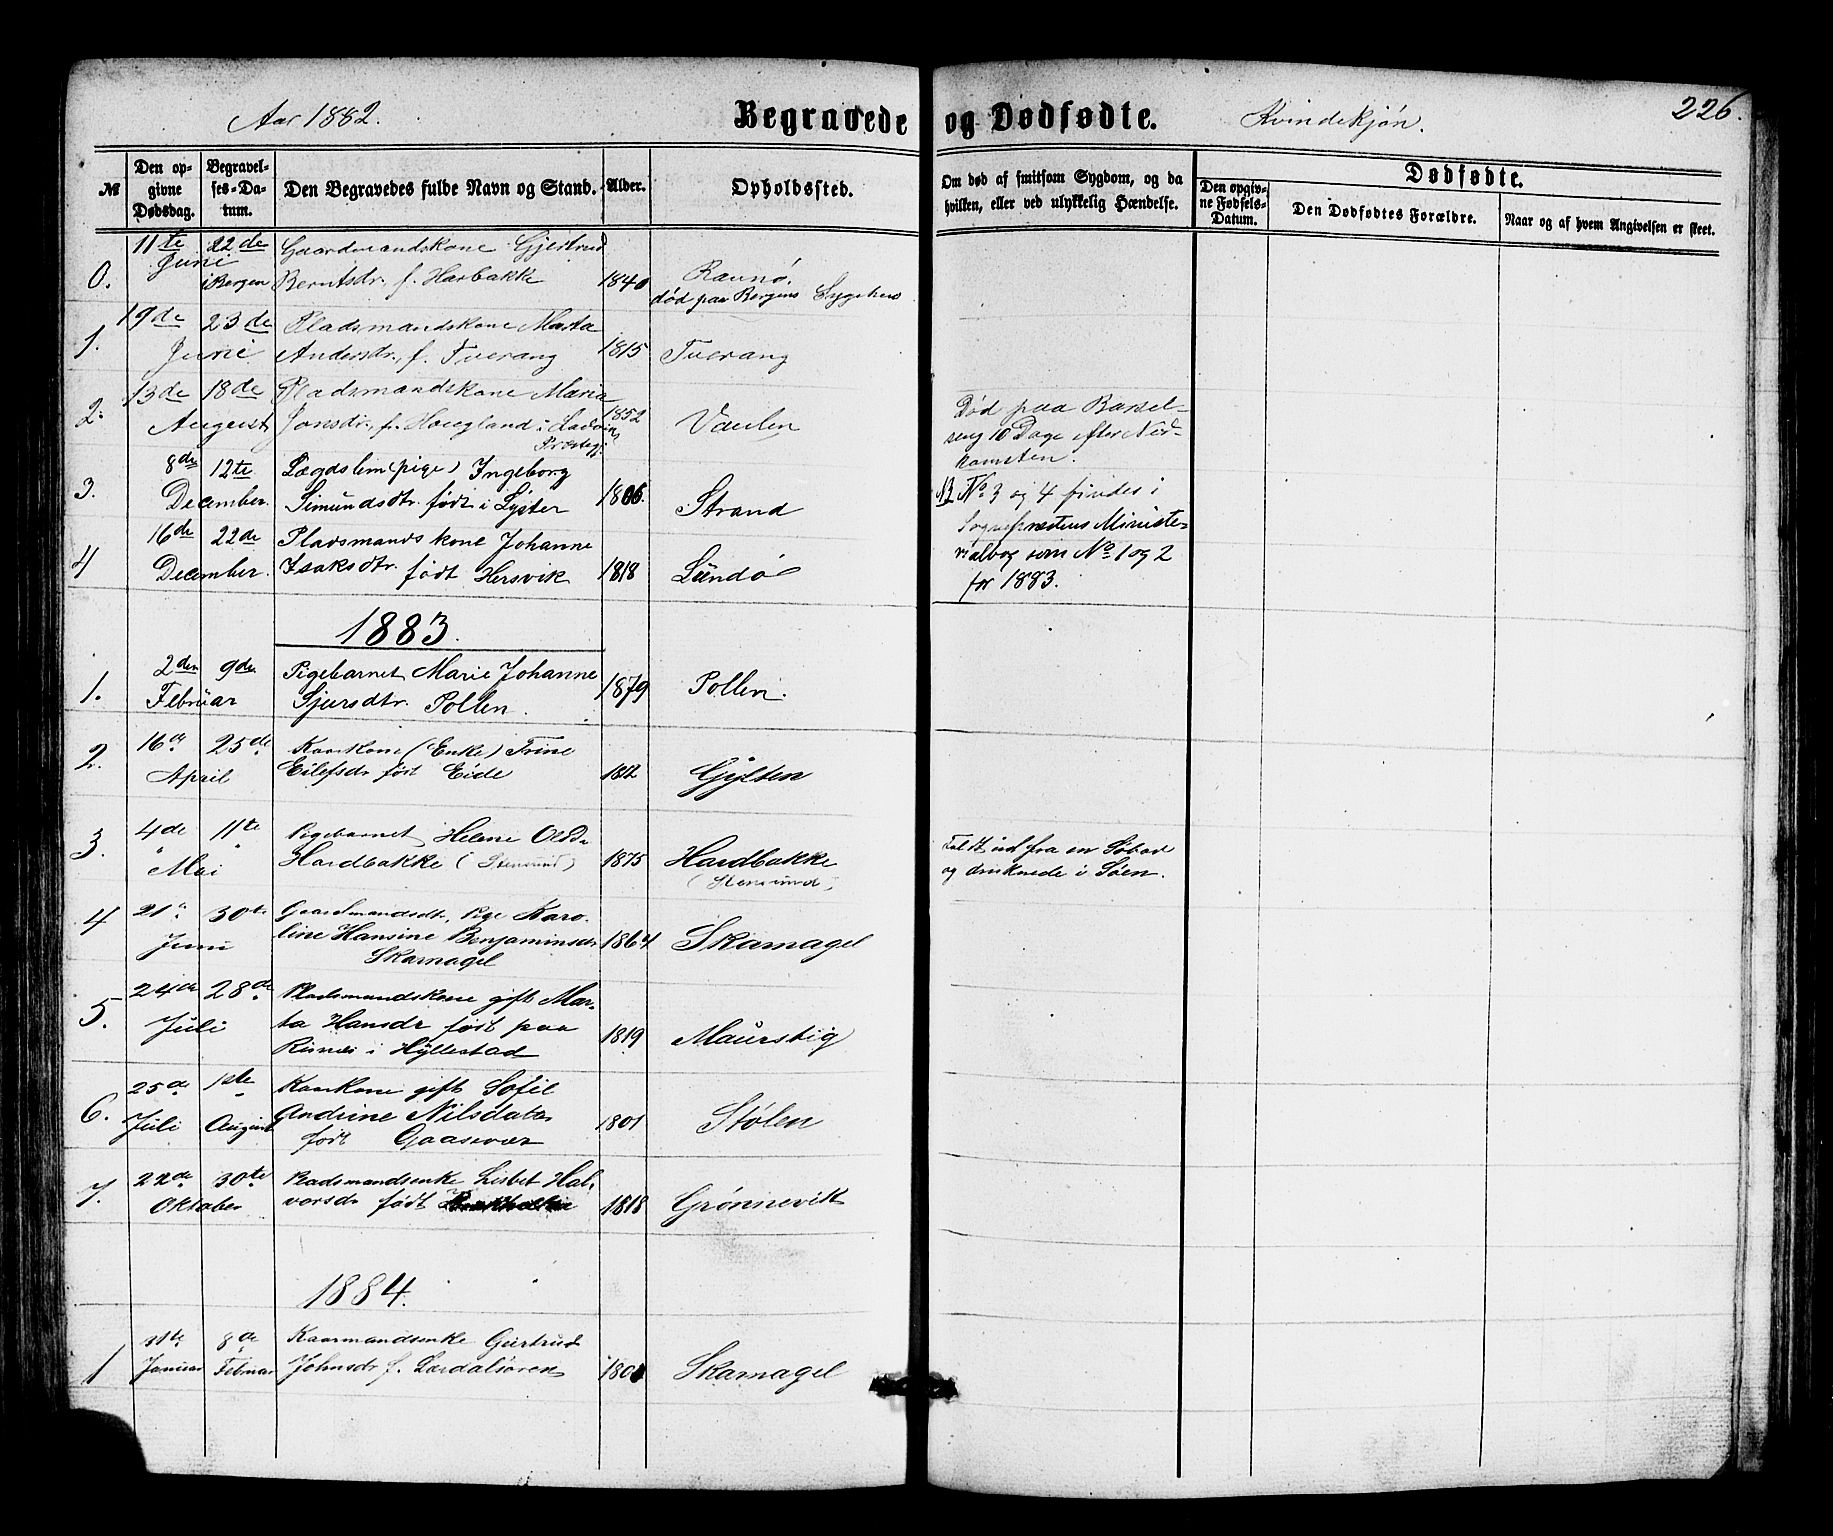 Aar 1882.
Begravede og Dødfødte.
Kvindekjøn.
226.
№
Den op-
givne
Dødsdag.
Begravel-
ses-Da-
tum.
Den Begravedes fulde Navn og Stand.
Alder.
Opholdssted.
Om død af smitsom Sygdom, og da
hvilken, eller ved ulykkelig Hændelse.
Dødfødte.
Den opgiv-
ne Fødsels-
Datum.
Den Dødfødtes Forældre.
Naar og af hvem Angivelsen er skeet.
11te 22de Gaardmandskone Gjertrud
0. Juni i Bergen Berntsdr. f. Harbakke 1840 Ravnø.
død paa Bergens Sygehus
19de 23de Pladsmandskone Marta
1. Juni Andersdr. f. Tverang 1815 Tverang
13de 18de Pladsmandskone Maria
2. August Jonsdr. f. Hougland i Ladvig 1852 Vaulen
Præstegj.
Død paa Barsel-
seng 10 Dage efter Ned-
komsten.
8de 12te Lægdslem (pige) Ingeborg
3. December Simundsdtr. født i Lyster Strand
NB No 3 og 4 findes i
Sognepræstens Ministe-
rialbog som No 1 og 2
for 1883.
16de 22de Pladsmandskone Johanne
4 December Isaksdtr. født Hersvik 1818 Lundø
1883.
2den 9de Pigebarnet Marie Johanne
1. Februar Sjursdtr. Pollen. 1879 Pollen.
16de 25de Kaarkone (Enke) Trine
2. April Eilefsdr født Eide 1812 Gylten
4de 11te Pigebarnet Helene Olsdr
3. Mai Hardbakke (Stensund) 1875 Hardbakke
(Stensund)
Faldt ud fra en Søbod
og druknede i Søen.
21de 30te Gaardmandsdt, Pige Karo-
4 Juni line Hansine Benjaminsdr 1864 Skarnagel
Skarnagel
24de 28de Pladsmandskone gift Mar-
5. Juli ta Hansdr født paa 1819 Maurstig
Risnes i Hyllestad
25de 1ste Kaarkone gift Sofie
6. Juli August Andrine Nilsdatr 1801 Stølen
født Gaasevær
22de 30te Pladsmandsenke Lisbet Hal-
7. Oktober vorsdr født 1818 Grønnevik
1884.
31te 8de Kaarmandsenke Gjertrud
1 Januar Februar Johnsdr f. Lærdalsøren Skarnagel